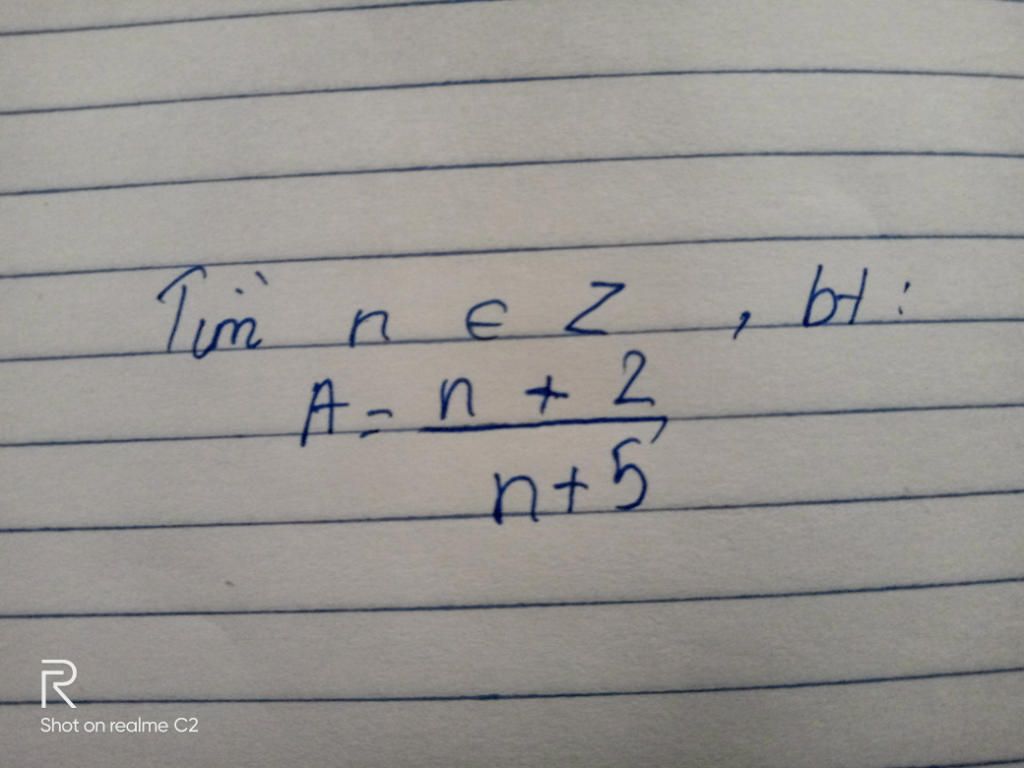 Tìm n ∈ Z , bt :
A = n + 2
n + 5
R
Shot on realme C2